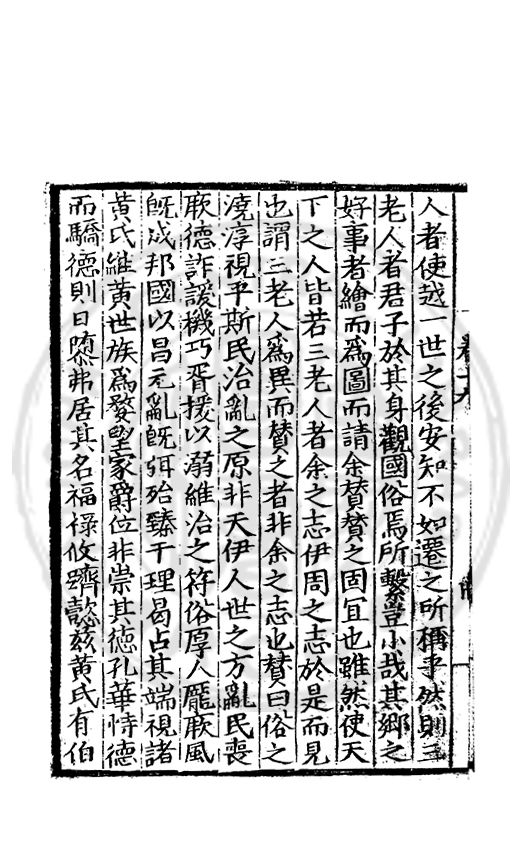 人者使越一世之後安知不如遷之所稱乎然則三
老人者君子於其身觀國俗焉所繫豈小哉其鄉之
好事者繪而爲圖而請余贊贊之固宜也雖然使天
下之人皆若三老人者余之志伊周之志於是而見
也謂三老人爲異而贊之者非余之志也贊曰俗之
澆淳視乎斯民治亂之原非天伊人世之方亂民喪
厥德詐諼機巧胥援以溺維治之符俗厚人厖厥風
旣成邦國以昌元亂旣弭殆臻于理曷占其端視諸
黃氏維黃世族爲婺望家爵位非崇其德孔華恃德
而驕德則日隳弗居其名福祿攸躋懿茲黃氏有伯